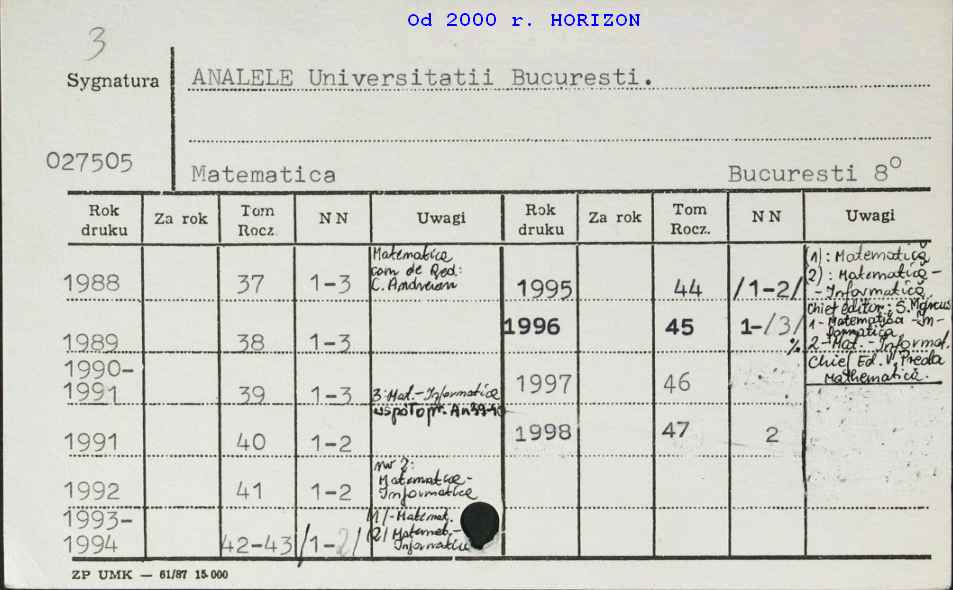 Od 2000 r. HORIZON
3
Sygnatura
ANALELE Universitatii Bucuresti.
027505
Matematica Bucuresti 8°
Rok druku Za rok Tom Rocz. N N Uwagi Rok druku Za rok Tom Rocz. N N Uwagi
1988 37 1-3 Matematica com de Red: C. Andreian
1989 38 1-3
1990-1991 39 1-3 3: Mat.-Informatica
1991 40 1-2
1992 41 1-2 nr 2: Matematica-Informatica
1993-1994 42-43 /1-2/ /1/-Matemat. /2/ Matemat.-Informatica
1995 44 /1-2/ (1): Matematică 2): Matematică-Informatică
1996 45 1-/3/ Chief editor: S. Marcus 1-Matematica-Informatica 2-Mat.-Informat.
1997 46 Chief Ed. V. Preda Mathematică.
1998 47 2
ZP UMK — 61/87 15.000